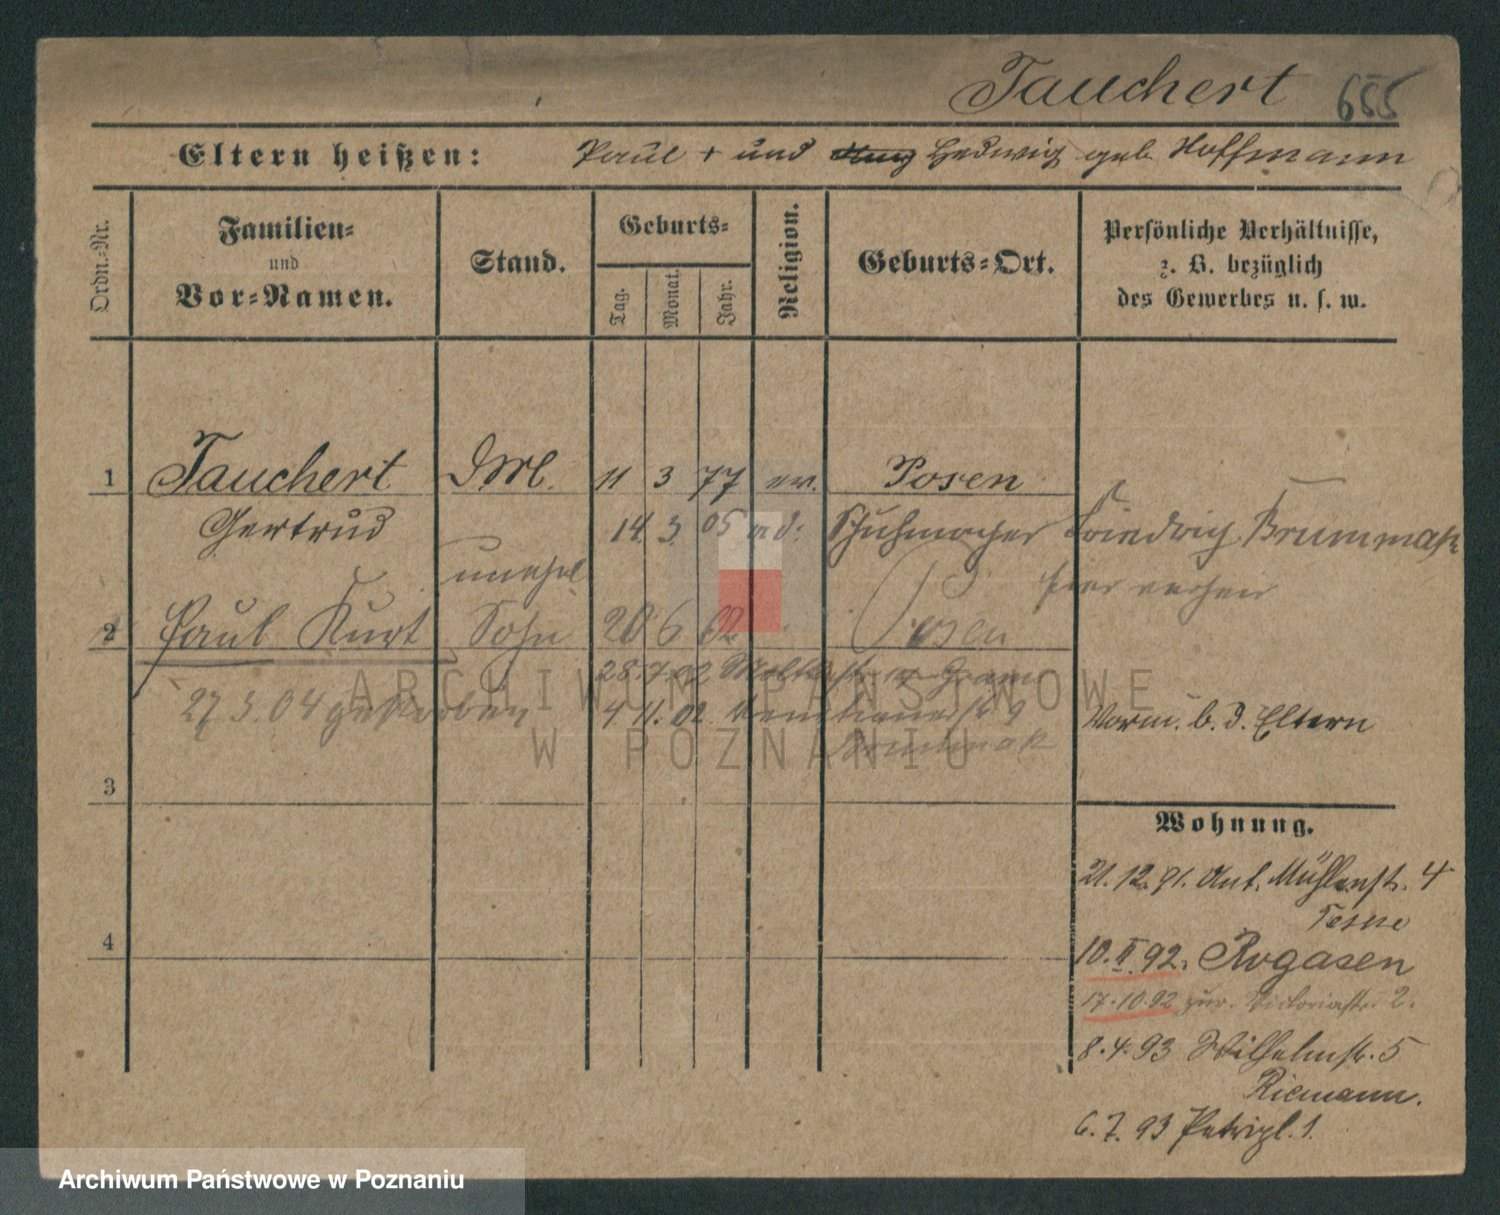 Tauchert 655
Eltern heißen: Paul + und Hedwig geb. Hoffmann
Ordn.-Nr.
Familien-
und
Vor-Namen.
Stand.
Geburts-
Tag. Monat. Jahr.
Religion.
Geburts-Ort.
Persönliche Verhältnisse,
z. B. bezüglich
des Gewerbes u. s. w.
1 Tauchert 11 3 77 ev. Posen
Gertrud 14. 3. 05 ad: Schuhmacher Friedrich
unehel.
2 Paul Kurt Sohn 20 6 02 Posen
28.7.02
27.3.04 gestorben 4 11. 02
Vorm. b. d. Eltern
3
Wohnung.
21.12.91. Mühlenst. 4
4
10.II.92. Rogasen
17.10.92 zur. Victoriastr. 2.
8.4.93 Wilhelmstr. 5
Riemann.
6.7.93 Petripl. 1.
ARCHIWUM PAŃSTWOWE
W POZNANIU
Archiwum Państwowe w Poznaniu